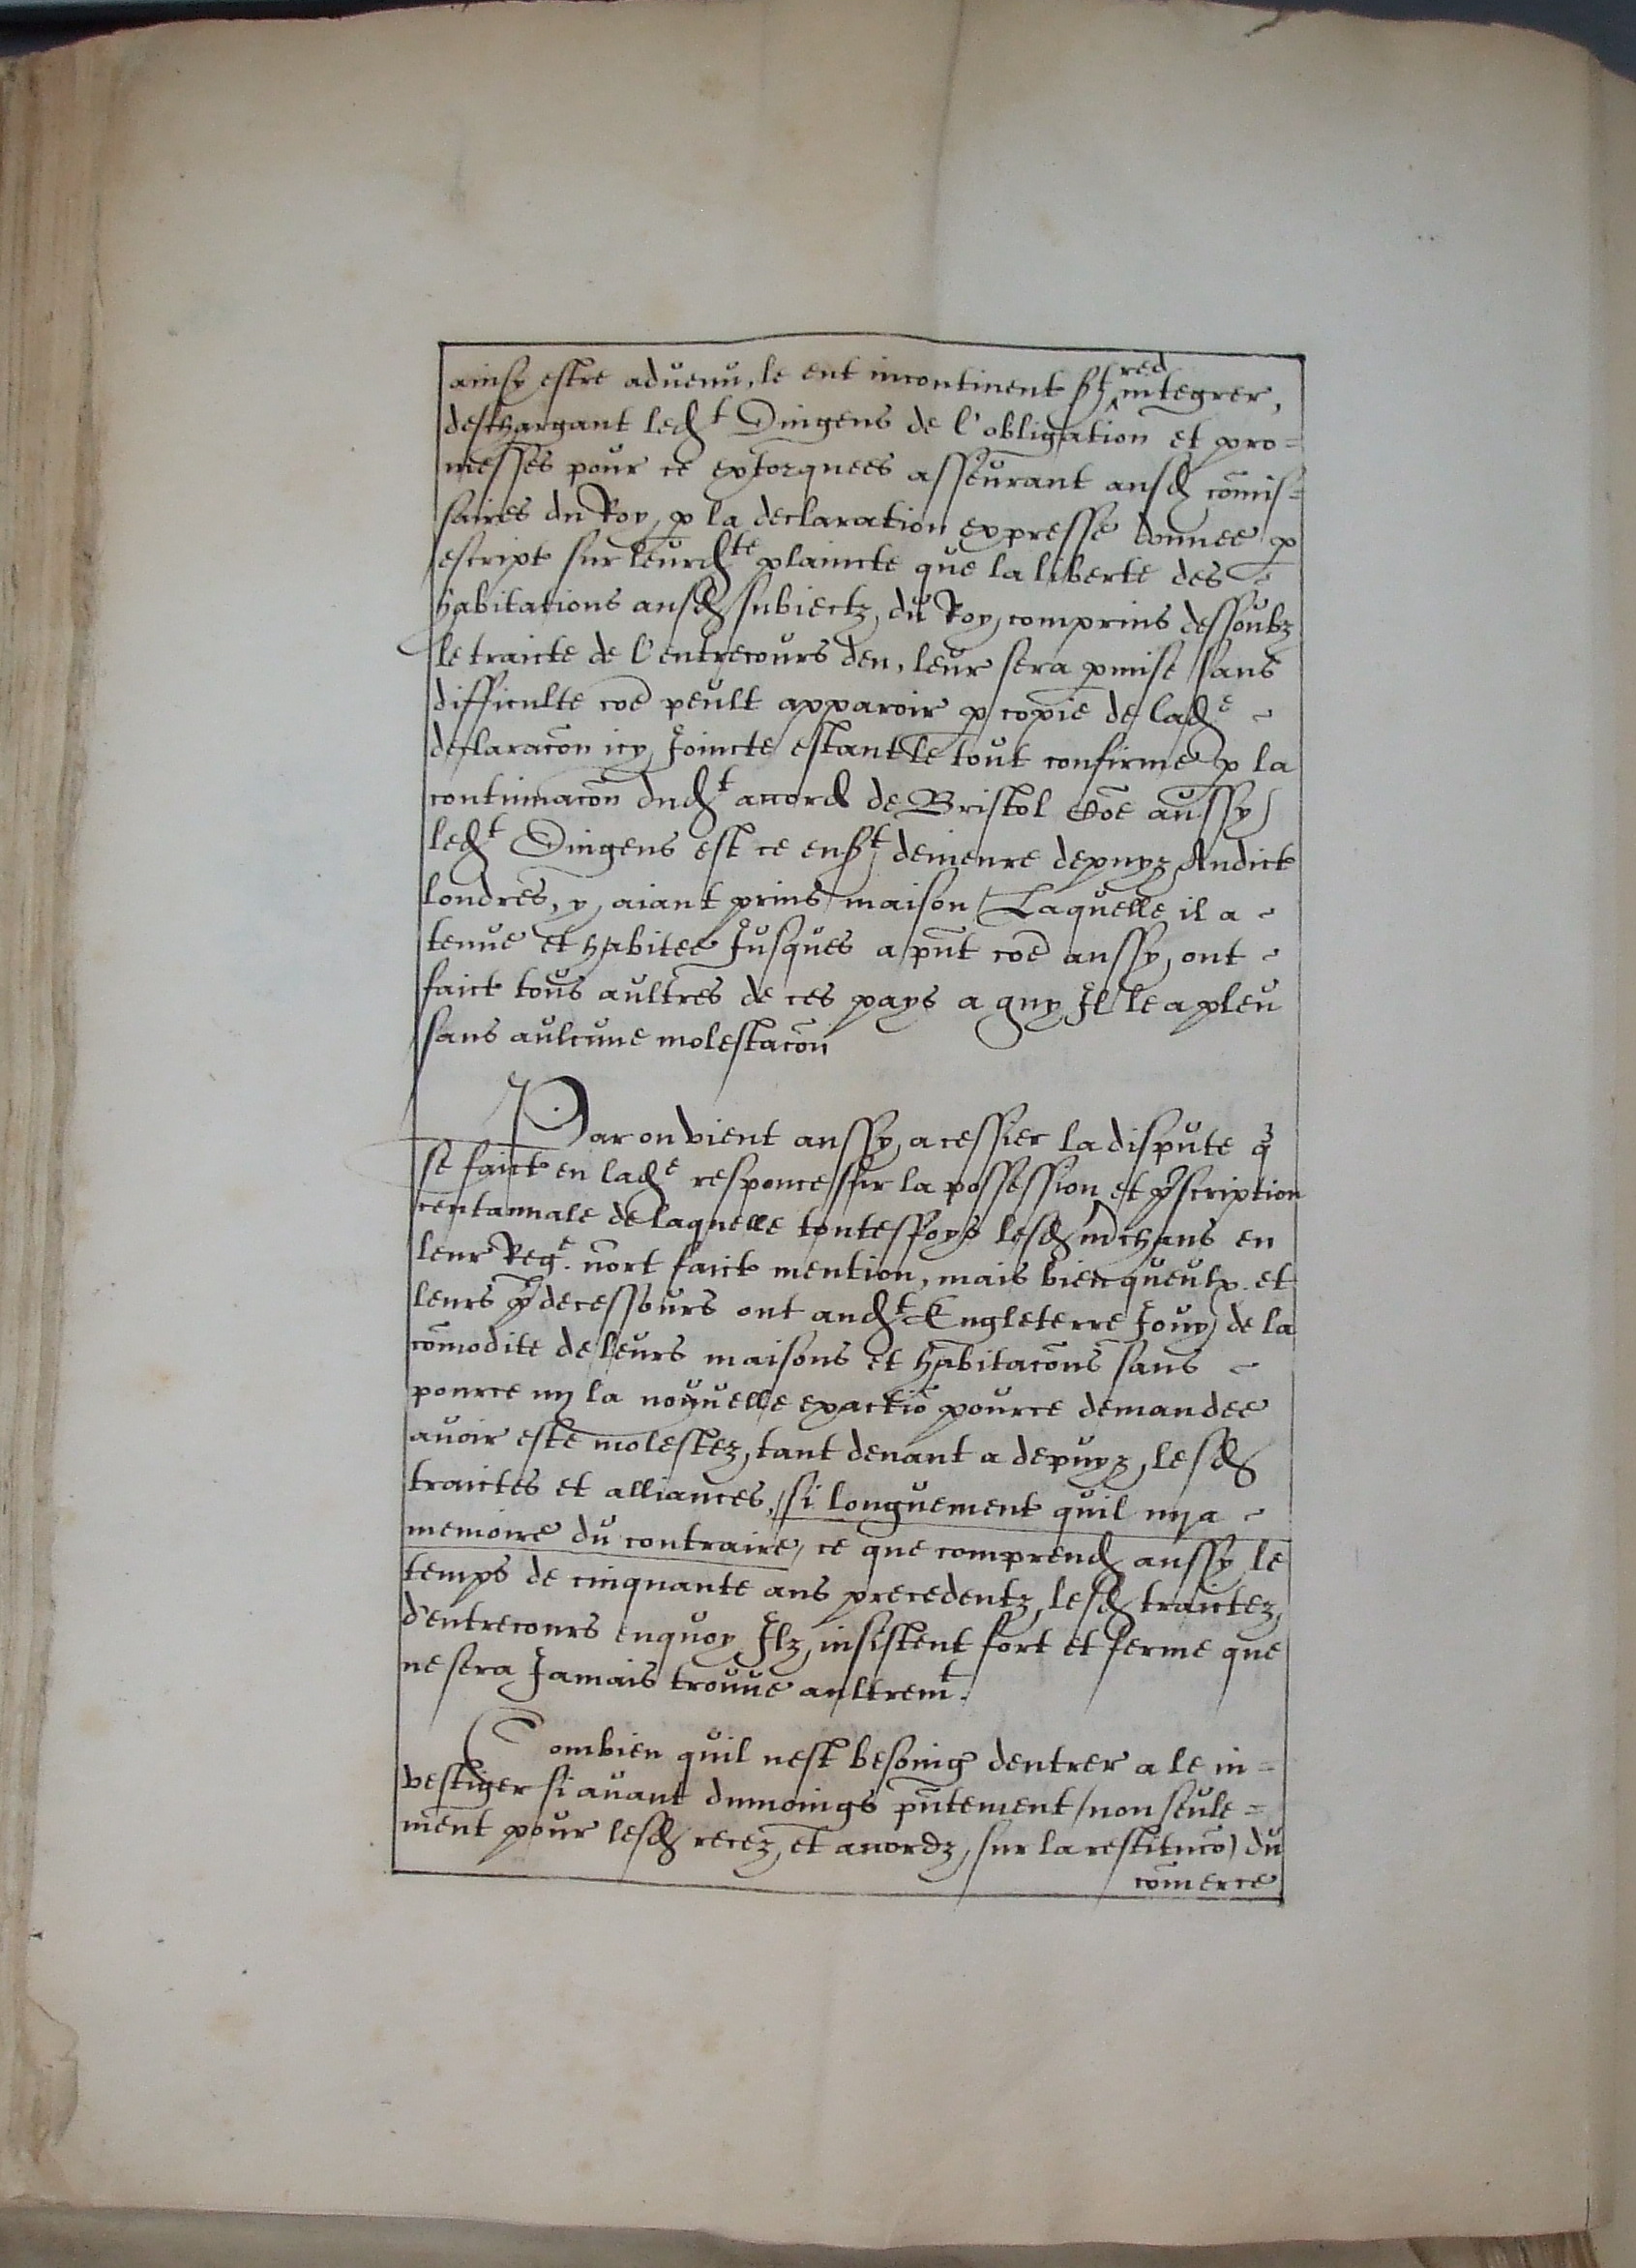 ainsy estre aduenu, le ent incontinent redintegrer,
deschargant led^t Dingens de l'obligation et pro=
messes pour ce extorquees asseurant ausd com̄is=
saires du Roy, p la declaration expresse donnee p
escript sur leurd^te plaincte que la liberte des
habitations ausd subiectz, du Roy, comprins dessoubz
le traicte de l'entrecours den, leur sera pmise sans
difficulte coē peult apparoir p copie de lad^e
declaracōn icy Joincte estant le tout confirme p la
continuacōn dud^t accord de Bristol Coē aussy
led^t Dingens est ce demeure depuyz Audict
londres, y aiant prins maison Laquelle il a
tenue et habitee Jusques a pn̄t coē aussy, ont
faict tous aultres de ces pays a quy Il le a pleu
sans aulcune molestacōn
Par on vient aussy, a cessier la dispute q̄
se faict en lad^e responce sur la possession et p̄scription
centannale de laquelle touteffoys lesd m̄chans en
leur Reg^e. n'ont faict mention, mais bien queulx. et
leurs p̄decesseurs ont aud^t Engleterre Jouy de la
com̄odite de leurs maisons et habitacōns sans
pource ny la nouuelle exactiō pource demandee
auoir este molestez, tant deuant a depuyz, lesd
traictes et alliances, si longuement quil ny a
memoire du contraire, ce que comprend aussy le
temps de cinquante ans precedentz, lesd traictez,
dentrecours enquoy Ilz, insistent fort et ferme que
ne sera Jamais trouue aultrem^t.
Combien quil nest besoing dentrer a le in=
vestiger si auant dumoings pn̄tement / non seule=
ment pour lesd recez, et accordz, sur la restitucō du
com̄erce